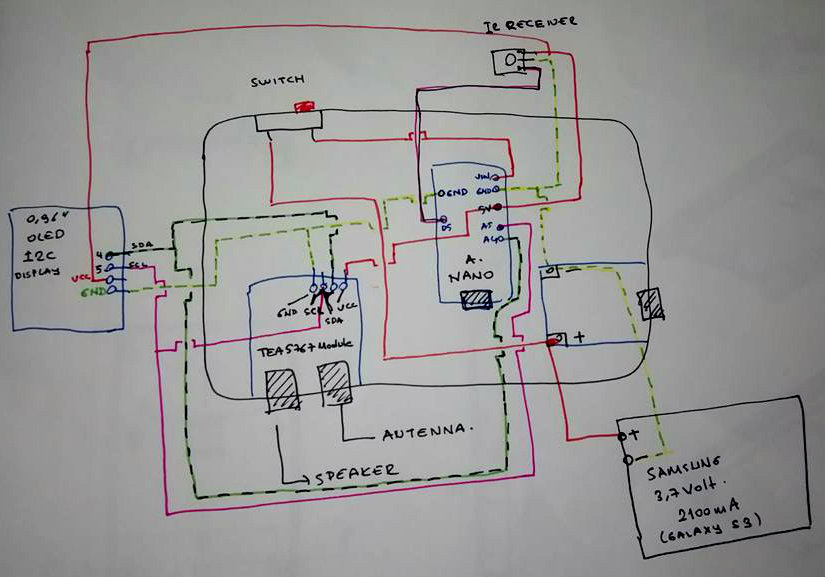 IR RECEIVER
SWITCH
VIN
GND
GND
5V
D5
A5
A4
A.
NANO
0,96"
OLED
I2C
DISPLAY
4
SDA
5
SCL
VCC
GND
GND
SCL
SDA
VCC
TEA5767 Module
ANTENNA.
SPEAKER
-
+
+
-
SAMSUNG
3,7 Volt.
2100mA
(GALAXY S3)